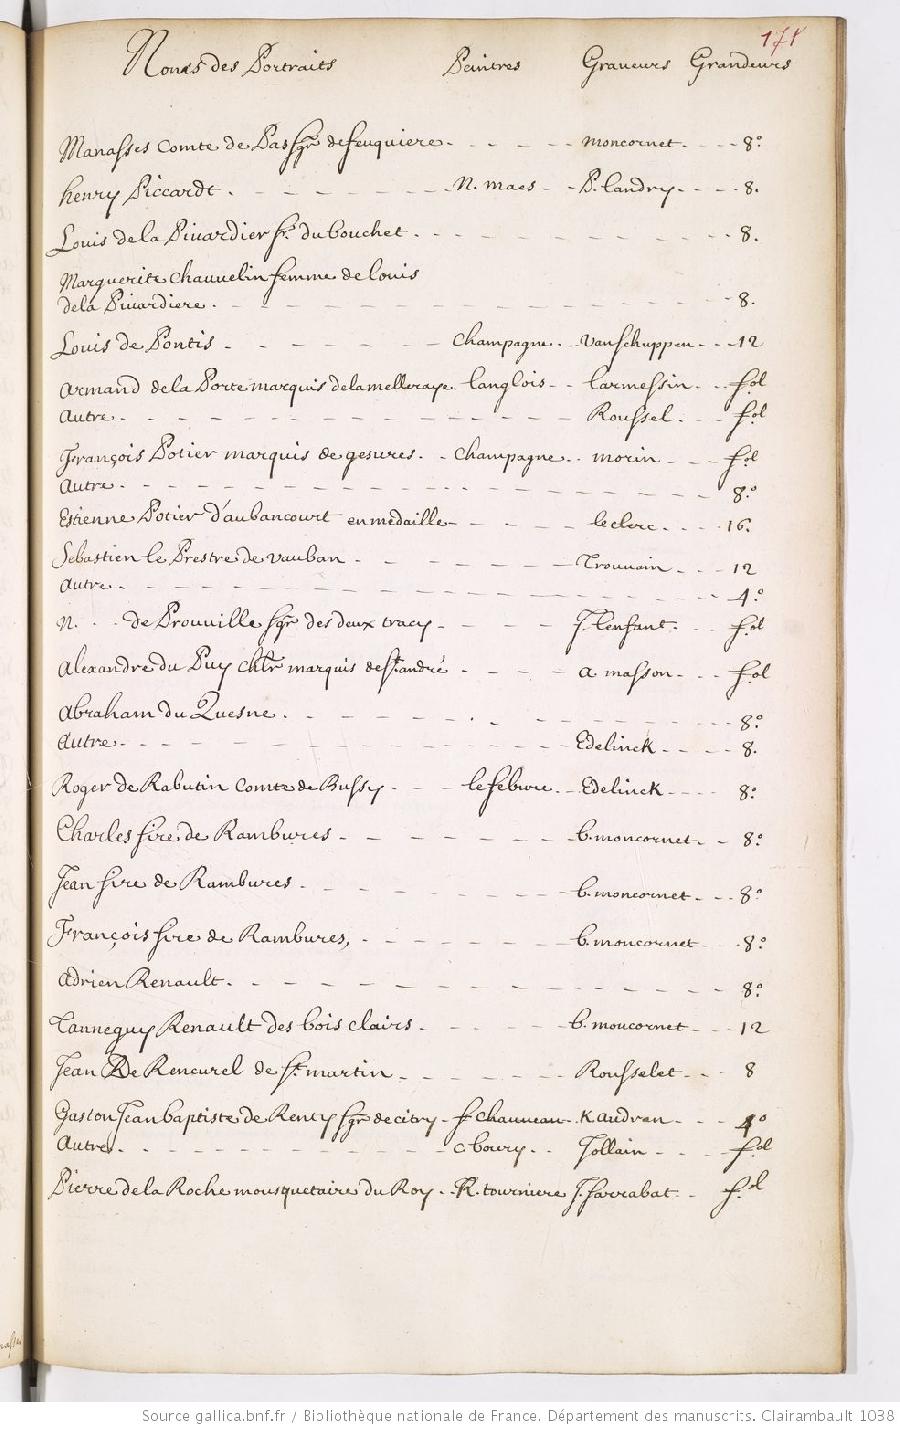 Noms des Portraits Peintres Graveurs Grandeurs
Manasses Comte de Pas sgr. de feuquiere. moncornet 8.°
henry Piccardt. N. maes P. landry 8.
Louis de la Piuardier sr. du bouchet. 8.
Marguerite chauuelin femme de louis
dela Piuardiere. 8.
Louis de Pontis champagne. vanschuppen 12
Armand dela Porte marquis delamelleraye. langlois larmessin fol
autre. Roussel. fol
François Potier marquis de gesures. champagne. morin fol
autre. 8.°
Estienne Potier d'aubancourt en medaille leclerc. 16.
Sebastien le Prestre de vauban. Trouuain. 12
autre. 4.°
N. . . de Prouville sgr des deux tracy J. lenfant. fol
Alexandre du Puy chlr marquis de St. andré a masson fol
Abraham du Quesne. 8.°
autre. Edelinck 8.
Roger de Rabutin Comte de Bussy lefebure. Edelinck 8.°
Charles sire de Rambures b. moncornet 8.°
Jean sire de Rambures. b. moncornet 8.°
François sire de Rambures, b. moncornet 8.°
adrien Renault. 8.°
Tanneguy Renault des bois clairs. b. moncornet 12
Jean De Rencurel de St. martin Rousselet 8
Gaston Jean baptiste de Renty sgr de citry f. chauueau K audran 4.°
Autre. c boury. Jollain fol
Pierre de la Roche mousquetaire du Roy. R. tourniere J. sarrabat fol
Source gallica.bnf.fr / Bibliothèque nationale de France. Département des manuscrits. Clairambault 1038